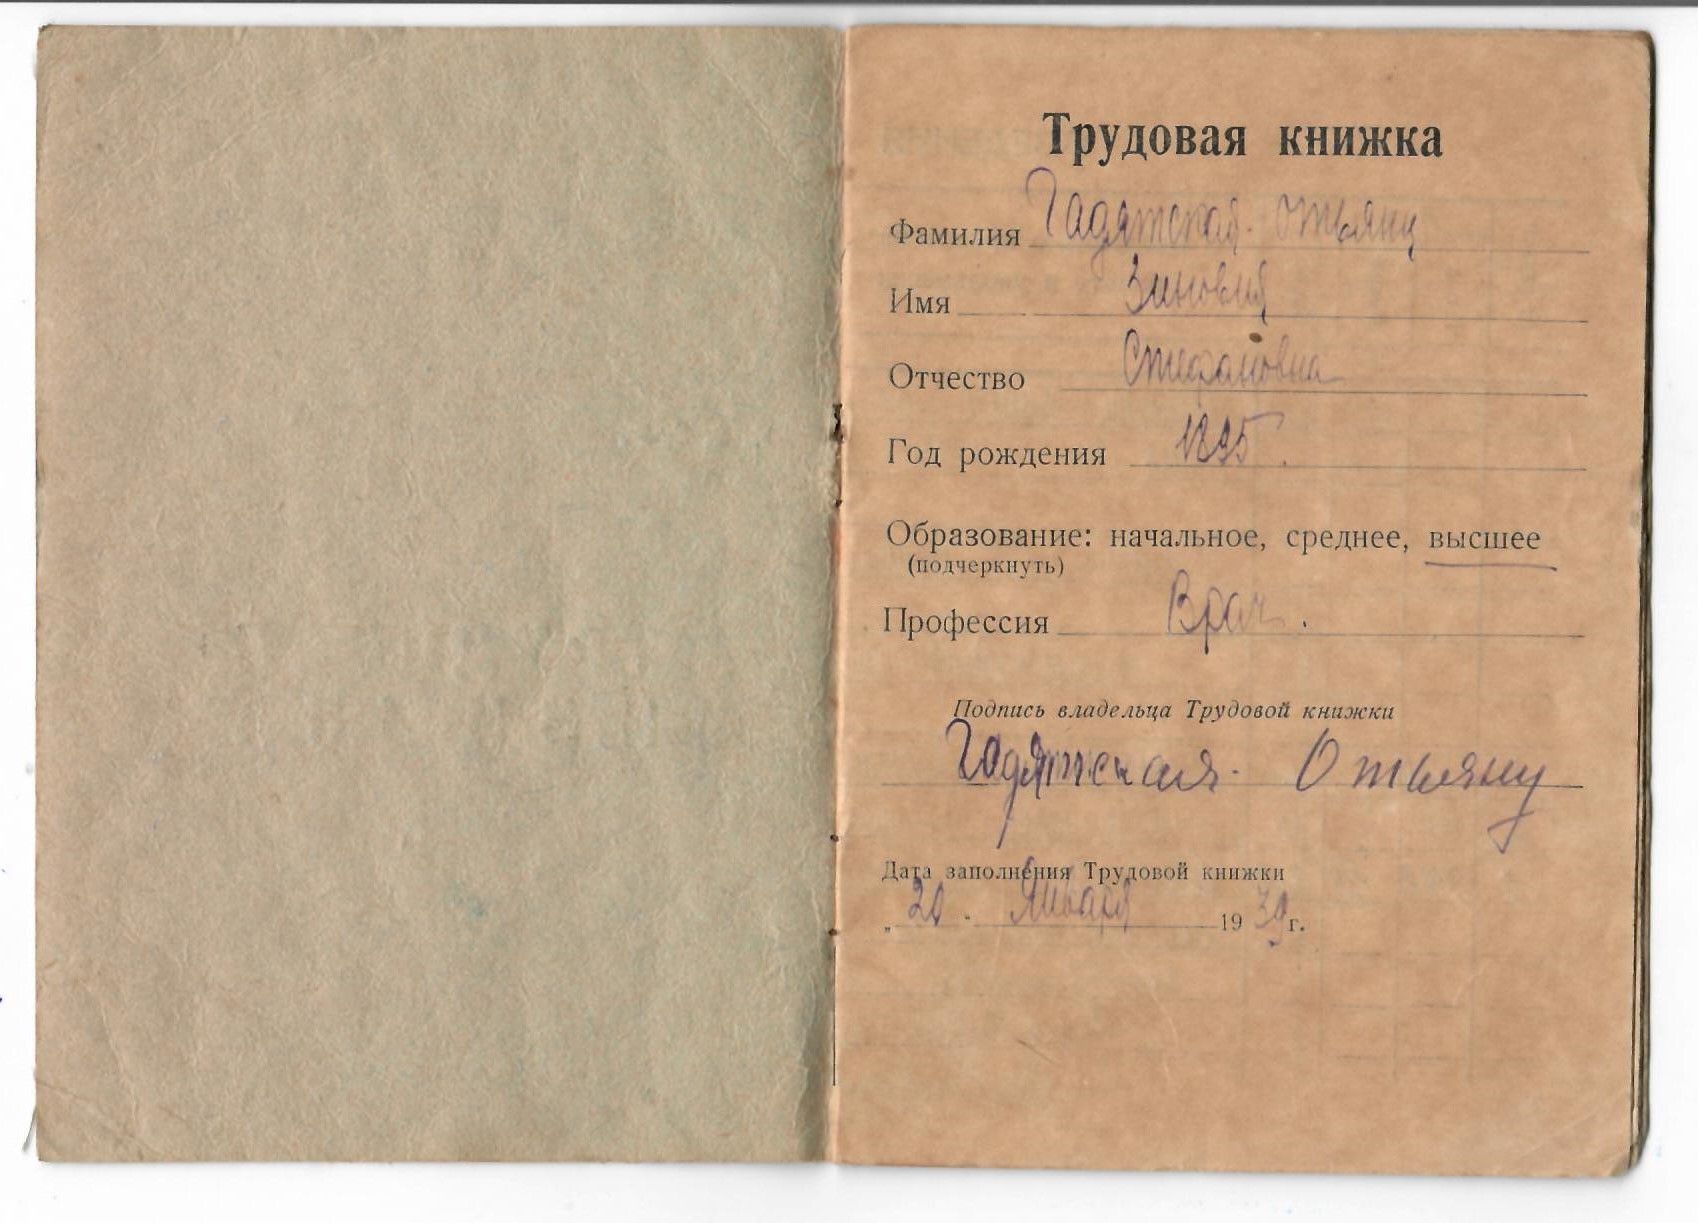 Трудовая книжка
Фамилия Гадятская-Отьянц
Имя Зиновия
Отчество Стефановна
Год рождения 1895
Образование: начальное, среднее, высшее
(подчеркнуть)
Профессия Врач.
Подпись владельца Трудовой книжки
Гадятская-Отьянц
Дата заполнения Трудовой книжки
„20" Января 1939г.